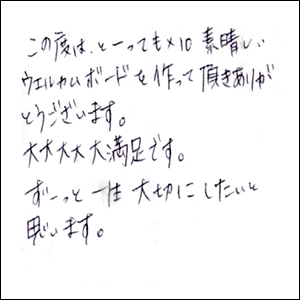 この度は、とーっても×10 素晴しい
ウェルカムボードを作って頂きありが
とうございます。
大大大大大満足です。
ずーっと 一生 大切にしたいと
思います。